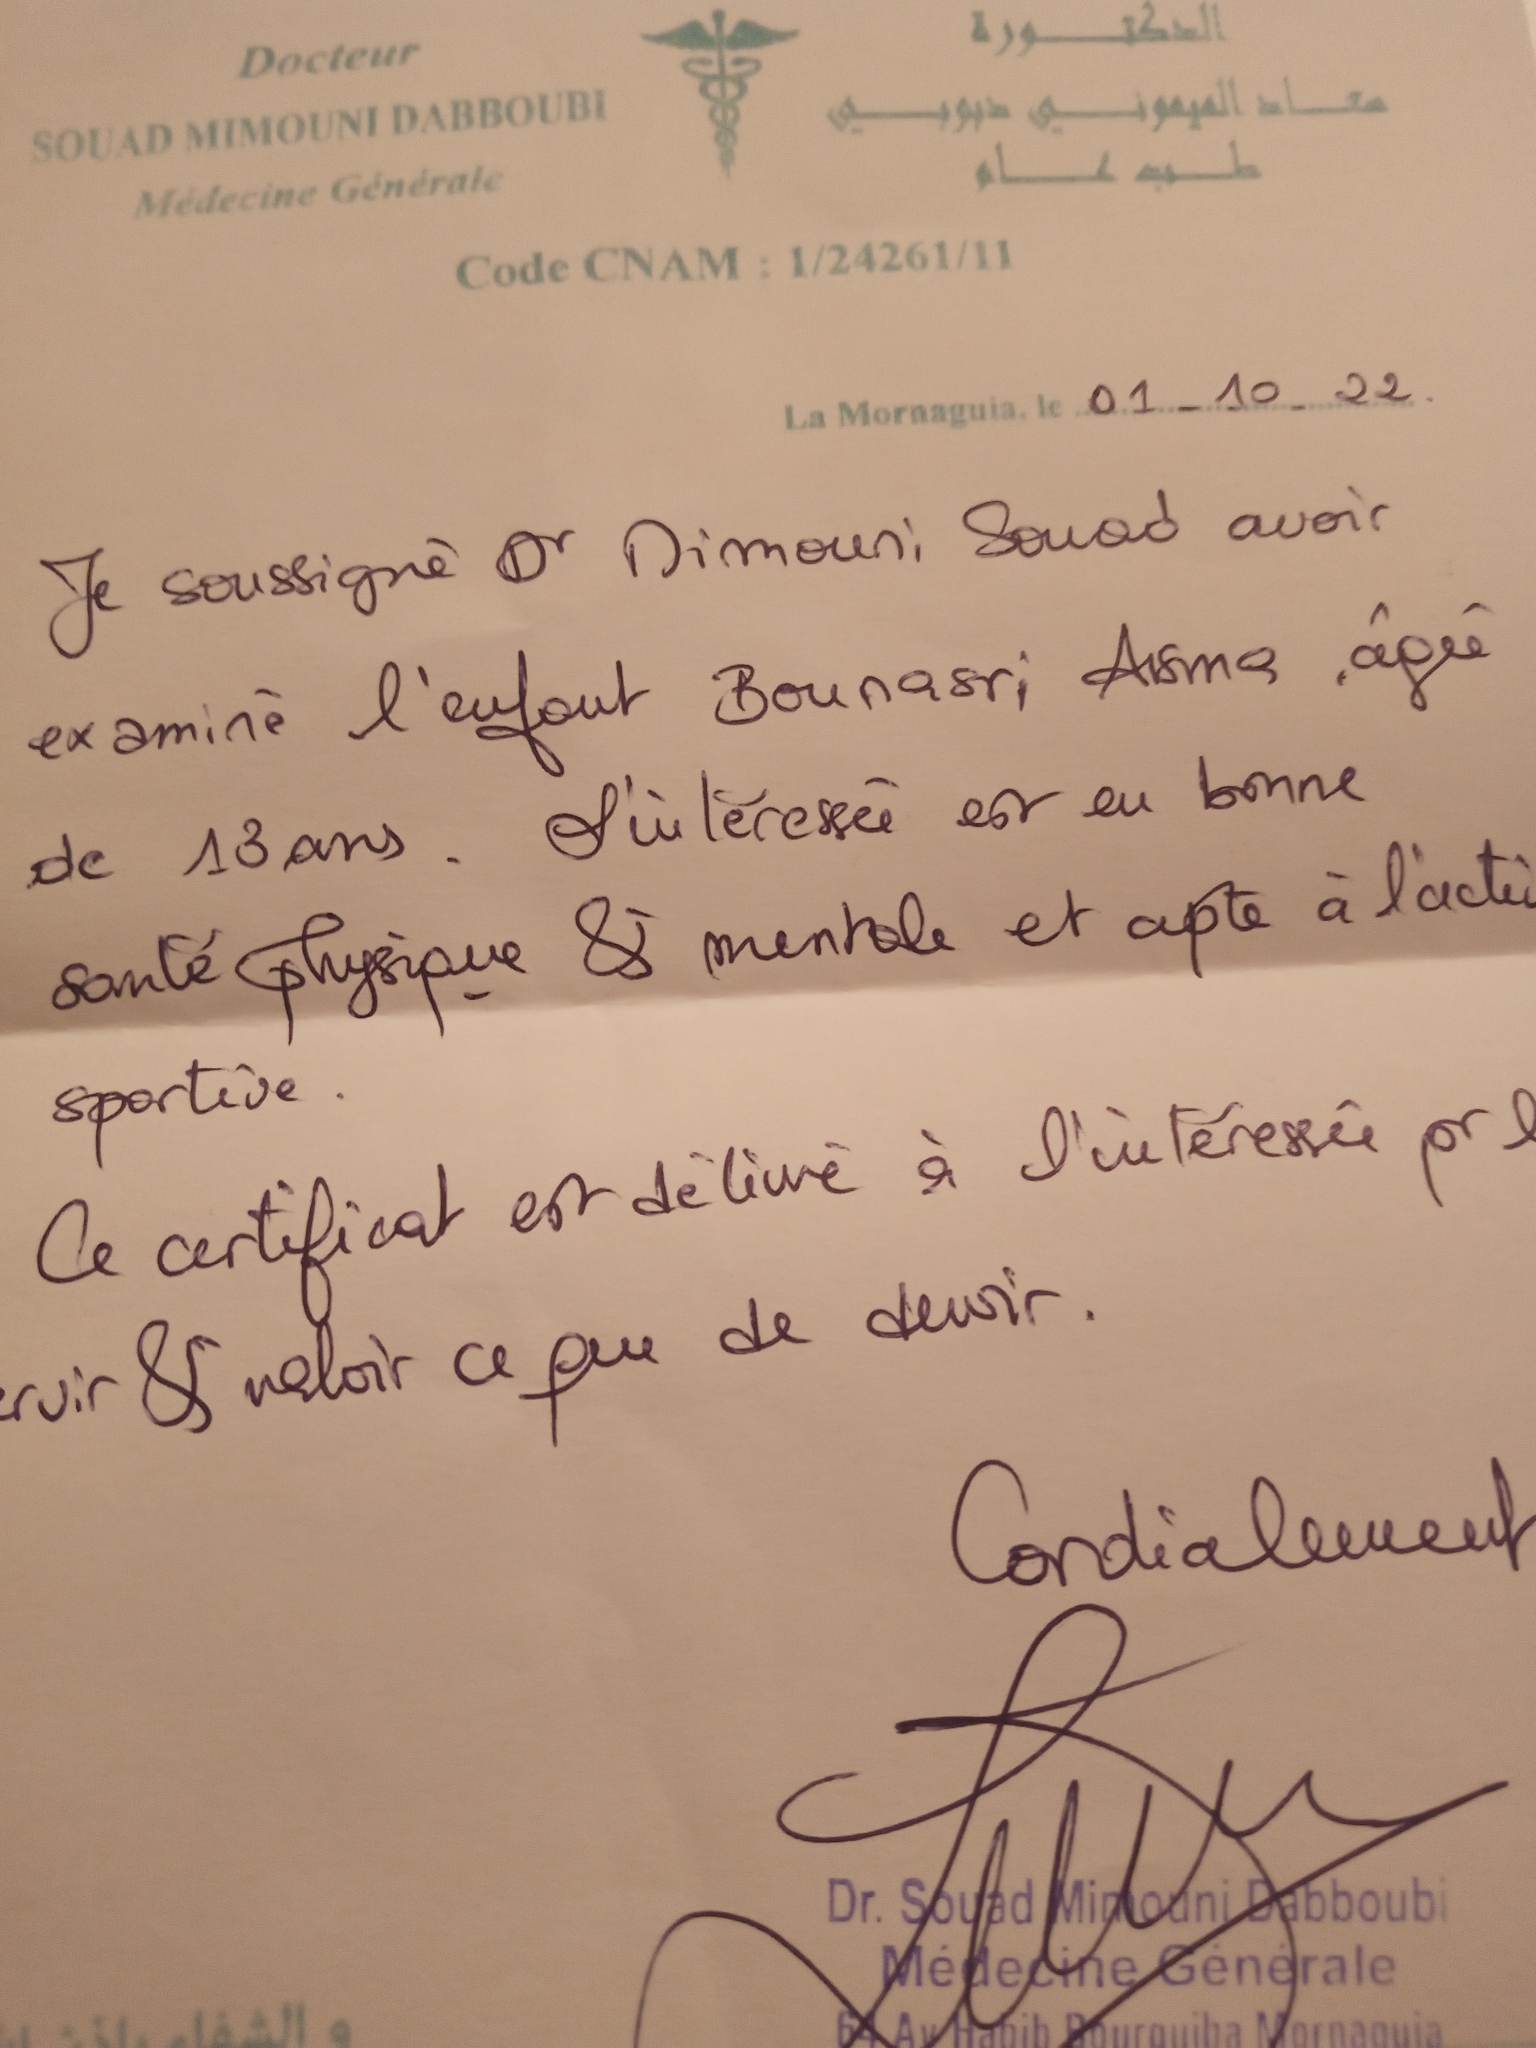 Docteur
SOUAD MIMOUNI DABBOUBI
Médecine Générale
الدكتورة
سعاد الميموني دبوبي
طب عام
Code CNAM : 1/24261/11
La Mornaguia, le 01_10_22.
Je soussigné Dr Mimouni Souad avoir
examiné l'enfant Bounasri Asma, âgée
de 13 ans. L'intéressée est en bonne
santé physique & mentale et apte à l'acti
sportive.
Ce certificat est délivré à l'intéressée pr l
ervir & valoir ce que de devoir.
Cordialement
Dr. Souad Mimouni Dabboubi
Médecine Générale
64 Av Habib Bourguiba Mornaguia
و الشفاء بإذن